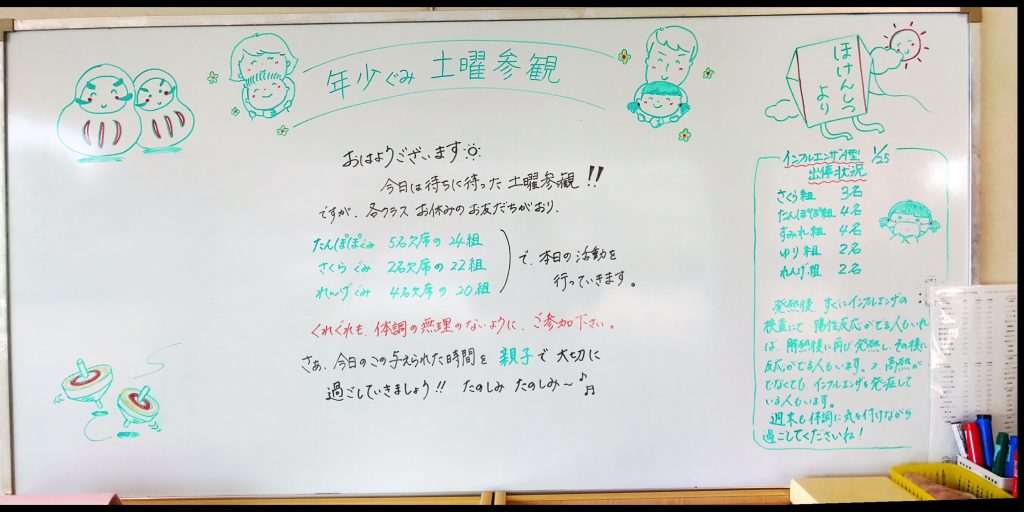 年少ぐみ 土曜参観
おはようございます
今日は待ちに待った 土曜参観!!
ですが、各クラス お休みのお友だちがおり、
たんぽぽぐみ 5名欠席の 24組
さくらぐみ 2名欠席の 22組
れんげぐみ 4名欠席の 20組
で、本日の活動を
行っていきます。
くれぐれも、体調の無理のないように、ご参加下さい。
さあ、今日のこの与えられた時間を 親子で大切に
過ごしていきましょう!! たのしみ たのしみ～♪♬
ほけんしつ
より
インフルエンザA型 1/25
出停状況
さくら組 3名
たんぽぽ組 4名
すみれ組 4名
ゆり組 2名
れんげ組 2名
発熱後、すぐにインフルエンザの
検査にて 陽性反応がでる人もいれ
ば、解熱後に再び発熱し、その後に
反応がでる人もいます。又、高熱が
でなくても インフルエンザを発症して
いる人もいます。
週末も体調に気を付けながら
過ごしてくださいね!